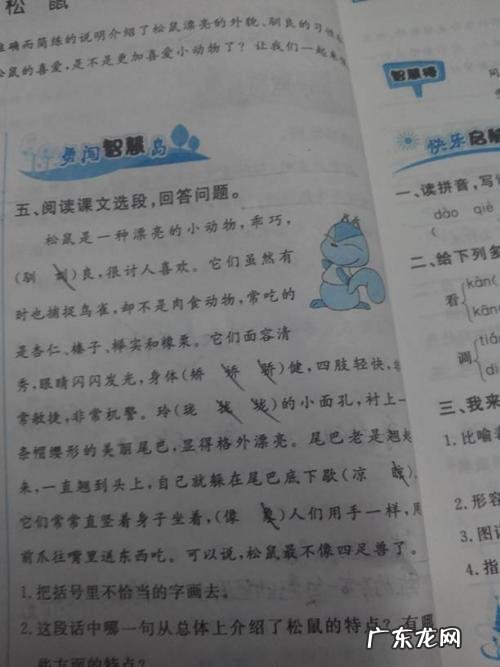 松鼠
准确而简练的说明介绍了松鼠漂亮的外貌、驯良的习性
松鼠的喜爱,是不是更加喜爱小动物了?让我们一起来
勇闯智慧岛
五、阅读课文选段,回答问题。
松鼠是一种漂亮的小动物,乖巧,
(驯 训)良,很讨人喜欢。它们虽然有
时也捕捉鸟雀,却不是肉食动物,常吃的
是杏仁、榛子、榉实和橡栗。它们面容清
秀,眼睛闪闪发光,身体(矫 娇 骄)健,四肢轻快,
常敏捷,非常机警。玲(珑 拢 垅)的小面孔,衬上一
条帽缨形的美丽尾巴,显得格外漂亮。尾巴老是翘起
来,一直翘到头上,自己就躲在尾巴底下歇(凉 晾)。
它们常常直竖着身子坐着,(像 象)人们用手一样,用
前爪往嘴里送东西吃。可以说,松鼠最不像四足兽了。
1.把括号里不恰当的字画去。
2.这段话中哪一句从总体上介绍了松鼠的特点?有
些方面的特点?
智慧
快乐启
一、读拼音,写
dào qiè
(
二、给下列多
看 kān(
kàn(
调 tiáo
diào
三、我来
1.比喻
2.形容
3.图
4.指
广东龙网